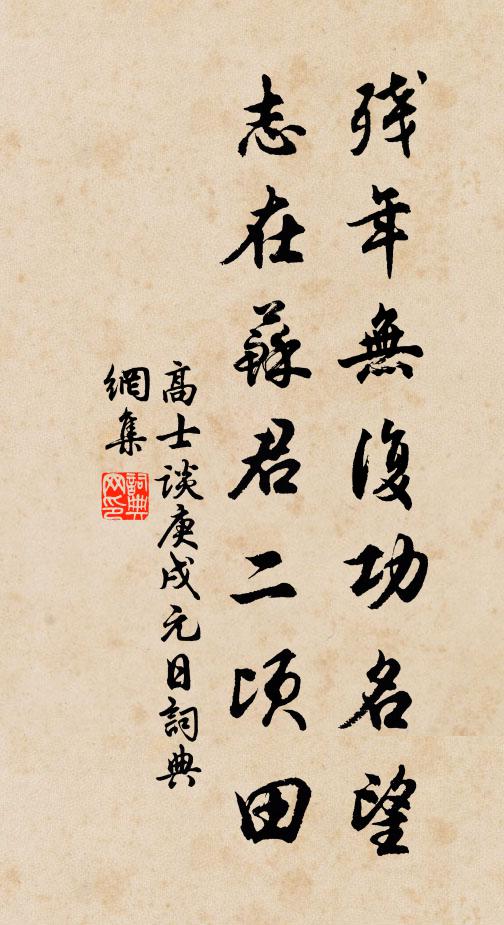 残年無復功名望
志在蘇君二頃田
高士谈庚戌元日詞典
網集
詞典网印